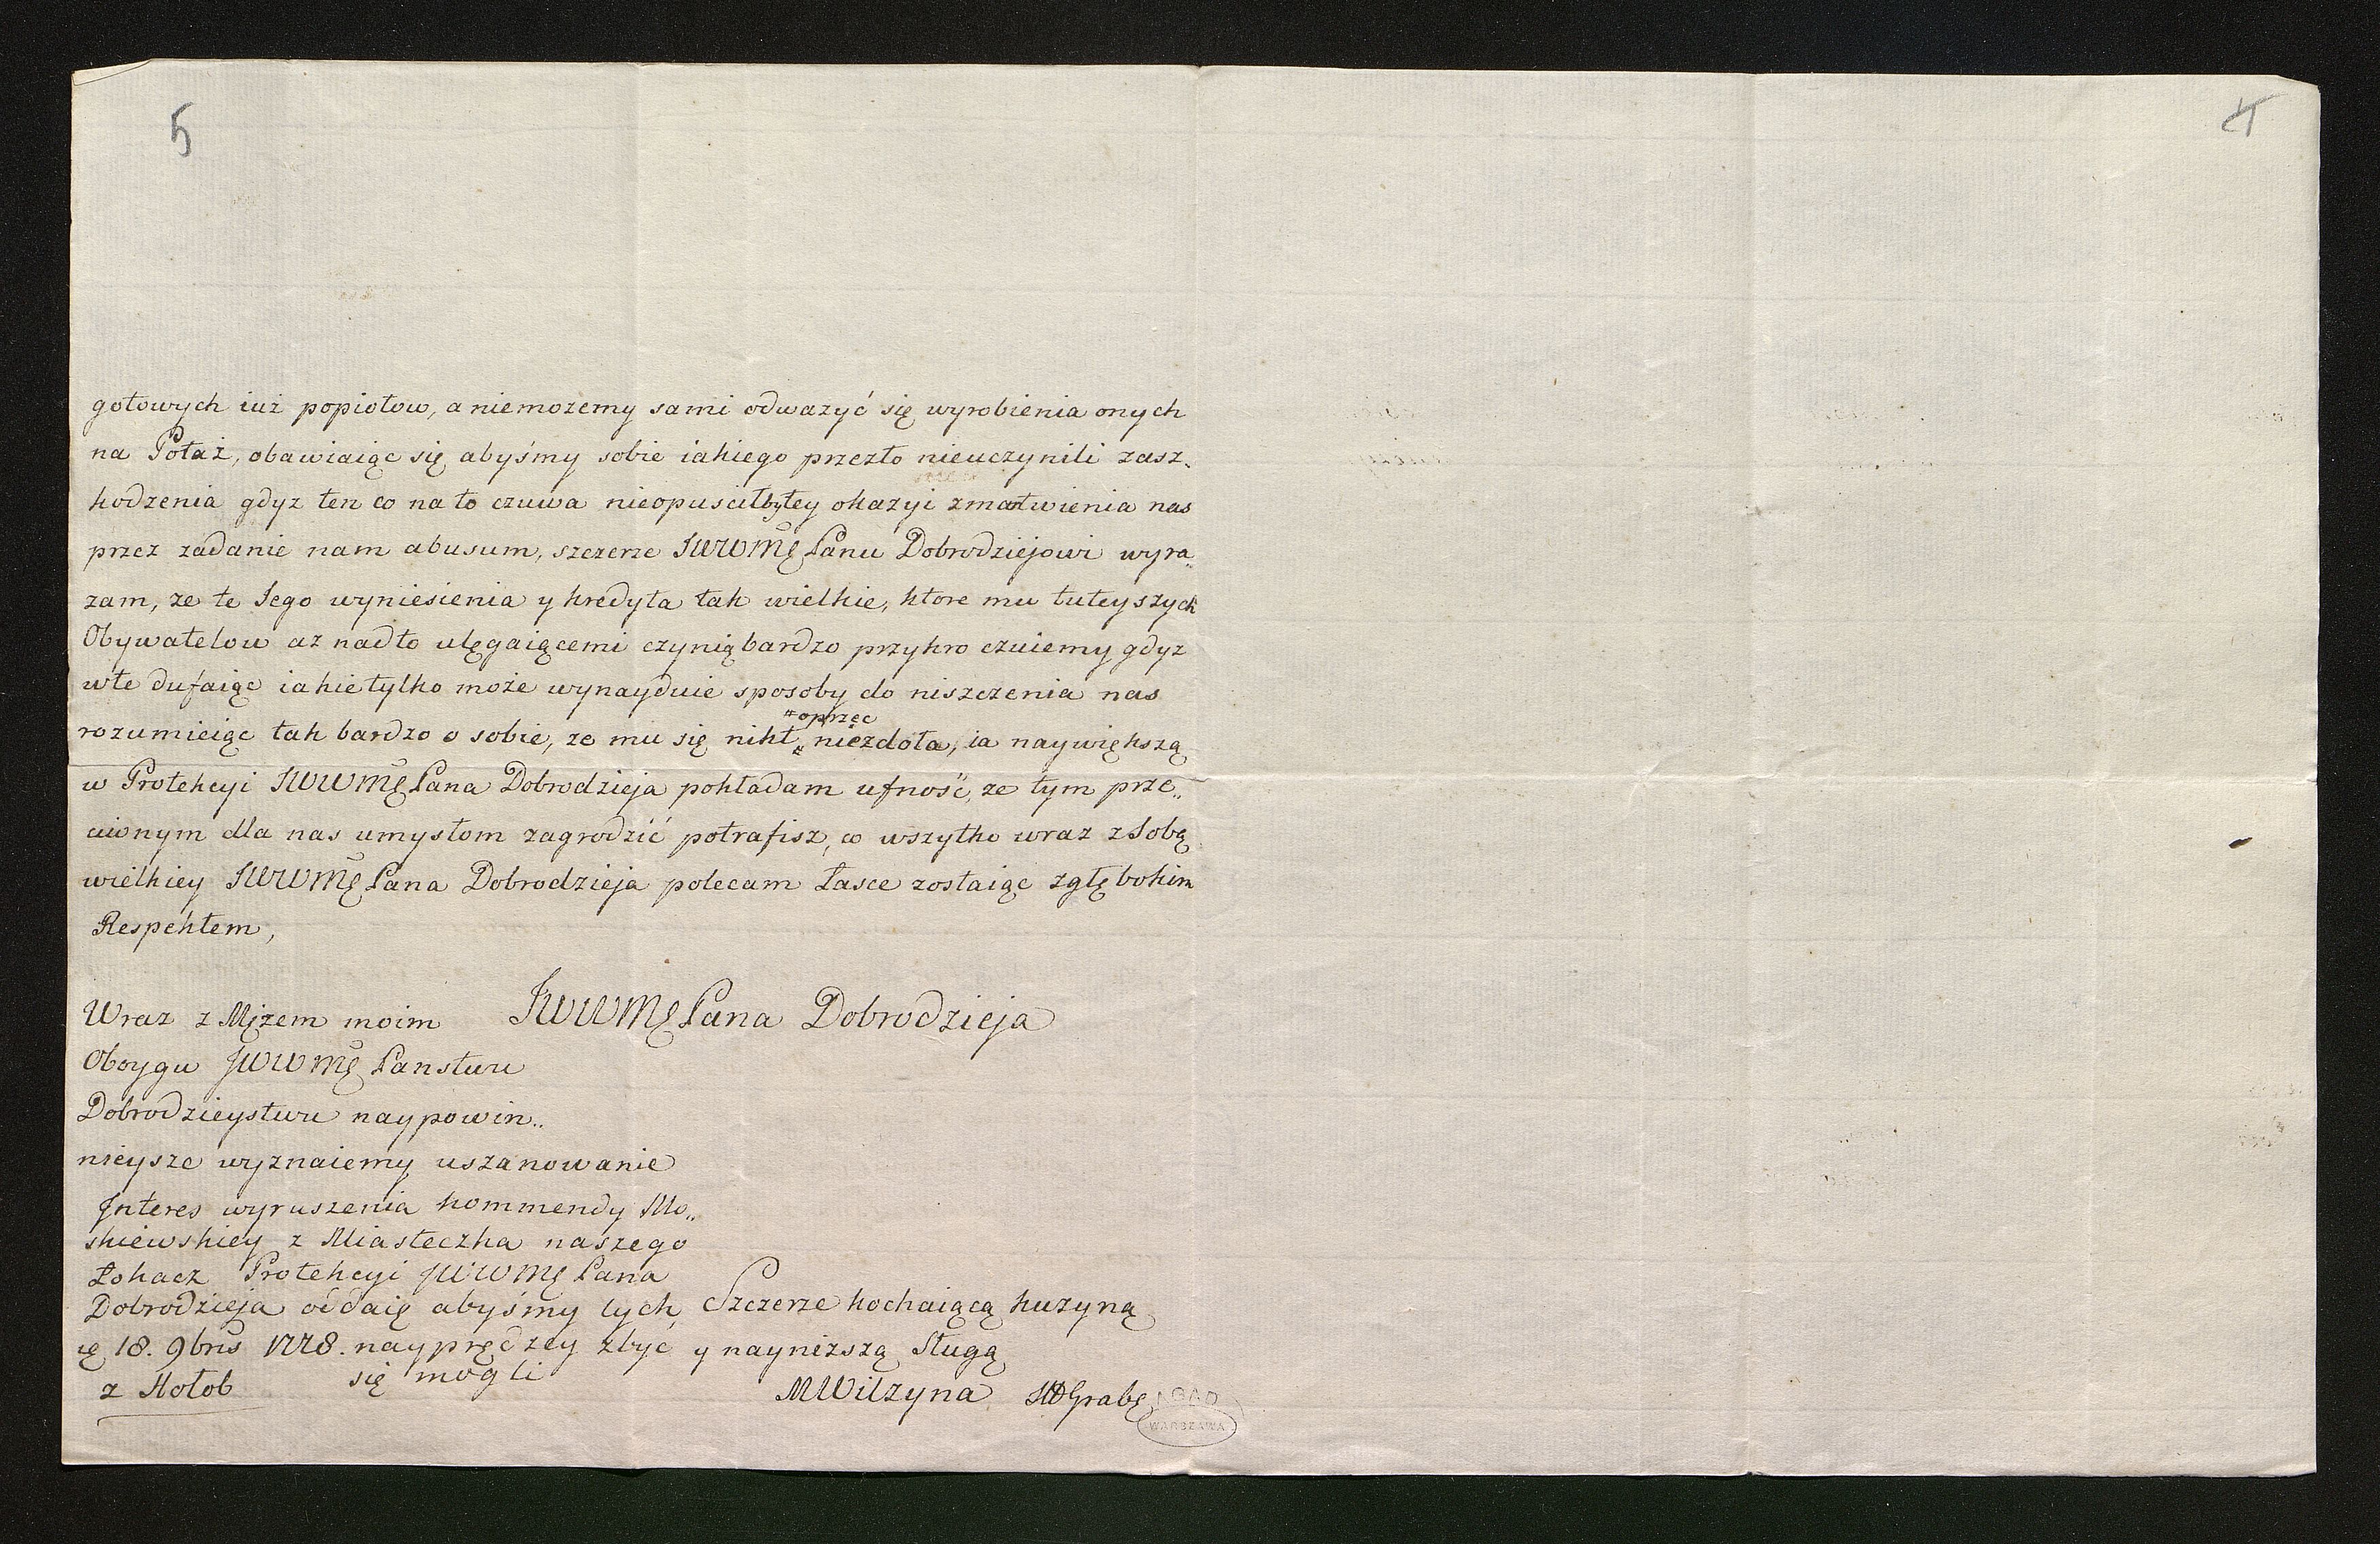 5
4
gotowych iuż popiołow, a niemozemy sami odwazyć się wyrobienia onych
na Potaż, obawiaiąc się abyśmy sobie iakiego przezto nieuczynili zasz„
kodzenia gdyz ten co na to czuwa nieopusciłby tey okazyi zmartwienia nas
przez zadanie nam abusum, szczerze JWWMę Panu Dobrodziejowi wyra„
zam, ze te Jego wyniesienia y kredyta tak wielkie, ktore mu tuteyszych
Obywatelow az nadto ulęgaiącemi czynią bardzo przykro czuiemy gdyz
w te dufaiąc iakie tylko może wynayduie sposoby do niszczenia nas
"oprzec
rozumieiąc tak bardzo o sobie, ze mu się nikt „ niezdoła, ia naywiększą
w Protekcyi JWWMę Pana Dobrodzieja pokładam ufność, ze tym prze„
ciwnym dla nas umysłom zagrodzić potrafisz, co wszytko wraz z Sobą
wielkiey JWWMę Pana Dobrodzieja polecam Łasce zostaiąc zgłębokim
Respektem,
JWWMę Pana Dobrodzieja
Wraz z Mężem moim
Oboygu JWWMę Panstwu
Dobrodzieystwu naypowin„
nieysze wyznaiemy uszanowanie
Jnteres wyruszenia kommendy Mo„
skiewskiey z Miasteczka naszego
Łokacz Protekcyi JWWMę Pana
Dobrodzieja oddaię abyśmy tych
18. 9bris 1778. nayprędzey zbyć
się mogli
z Hołob
Szczerze kochaiącą kuzyną
y nayniższą Sługą
MWilzyna
AGAD
WARSZAWA